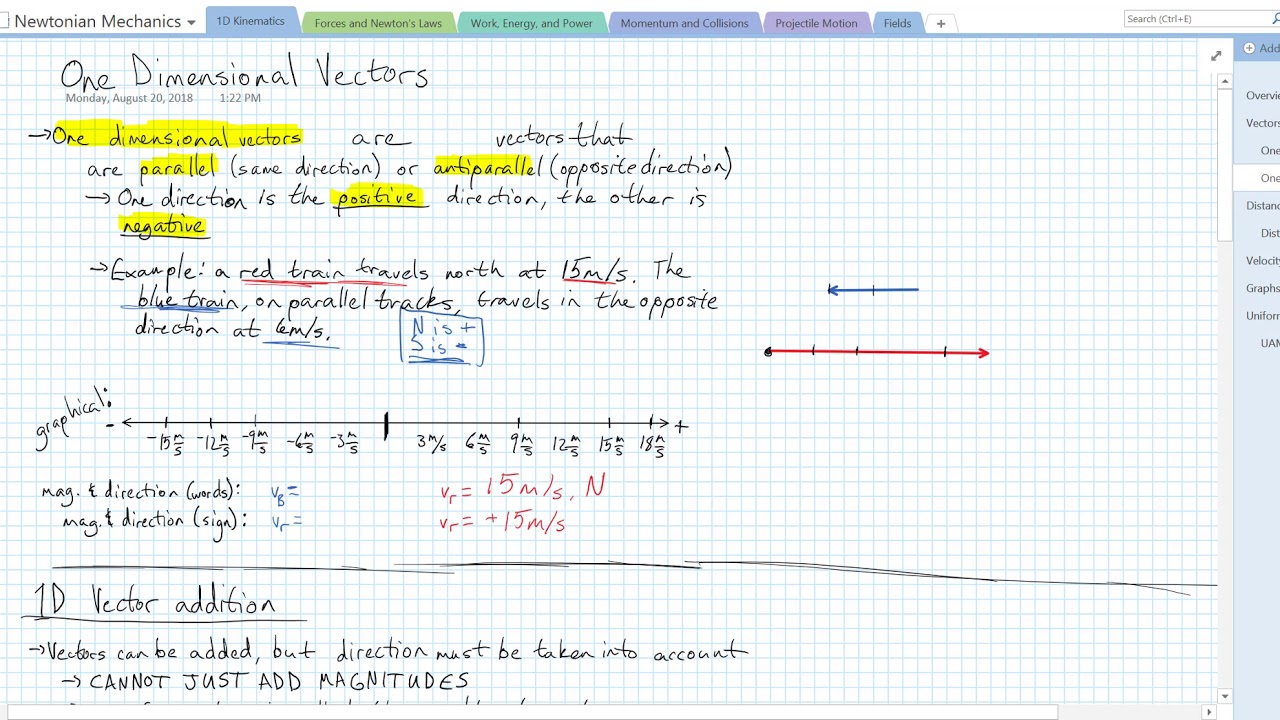 Newtonian Mechanics
1D Kinematics
Forces and Newton's Laws
Work, Energy, and Power
Momentum and Collisions
Projectile Motion
Fields
+
Search (Ctrl+E)
One Dimensional Vectors
Monday, August 20, 2018 1:22 PM
→One dimensional vectors are vectors that
are parallel (same direction) or antiparallel (opposite direction)
→ One direction is the positive direction, the other is
negative
→Example: a red train travels north at 15m/s. The
blue train, on parallel tracks, travels in the opposite
direction at 6m/s.
N is +
S is -
graphical:
- -15 m/s -12 m/s -9 m/s -6 m/s -3 m/s 3 m/s 6 m/s 9 m/s 12 m/s 15 m/s 18 m/s +
mag. & direction (words): vB = vr = 15m/s, N
mag. & direction (sign): vr = vr = +15m/s
1D Vector addition
→Vectors can be added, but direction must be taken into account
→ CANNOT JUST ADD MAGNITUDES
Add
Overvie
Vectors
One
One
Distanc
Dist
Velocity
Graphs
Uniform
UAM